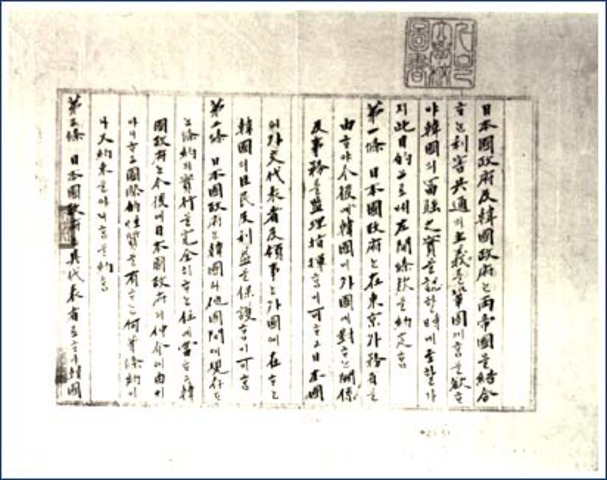 日本國政府及韓國政府と 兩帝國을 結合
ᄒᆞᄂᆞᆫ 利害共通의 主義를 鞏固케 ᄒᆞᆷ을 欲ᄒᆞ
야 韓國의 富强之實을 認ᄒᆞᆯ 時에 至ᄒᆞᆯ가
지 此目的으로써 左開條款을 約定ᄒᆞᆷ
第一條 日本國政府ᄂᆞᆫ 在東京外務省을
由ᄒᆞ야 今後에 韓國이 外國에 對ᄒᆞᄂᆞᆫ 關係
及事務를 監理指揮ᄒᆞᆷ이 可ᄒᆞ고 日本國
의 外交代表者及領事ᄂᆞᆫ 外國에 在ᄒᆞᄂᆞᆫ
韓國의 臣民及利益을 保護ᄒᆞᆷ이 可ᄒᆞᆷ
第二條 日本國政府ᄂᆞᆫ 韓國과 他國間에 現存ᄒᆞ
ᄂᆞᆫ 條約의 實行을 完全히 ᄒᆞᄂᆞᆫ 任에 當ᄒᆞ고 韓
國政府ᄂᆞᆫ 今後에 日本國政府의 仲介에 由치
아니ᄒᆞ고 國際的性質을 有ᄒᆞᄂᆞᆫ 何等條約이
나 又約束을 아니ᄒᆞᆷ을 約ᄒᆞᆷ
第三條 日本國政府ᄂᆞᆫ 其代表者로 ᄒᆞ야 韓國